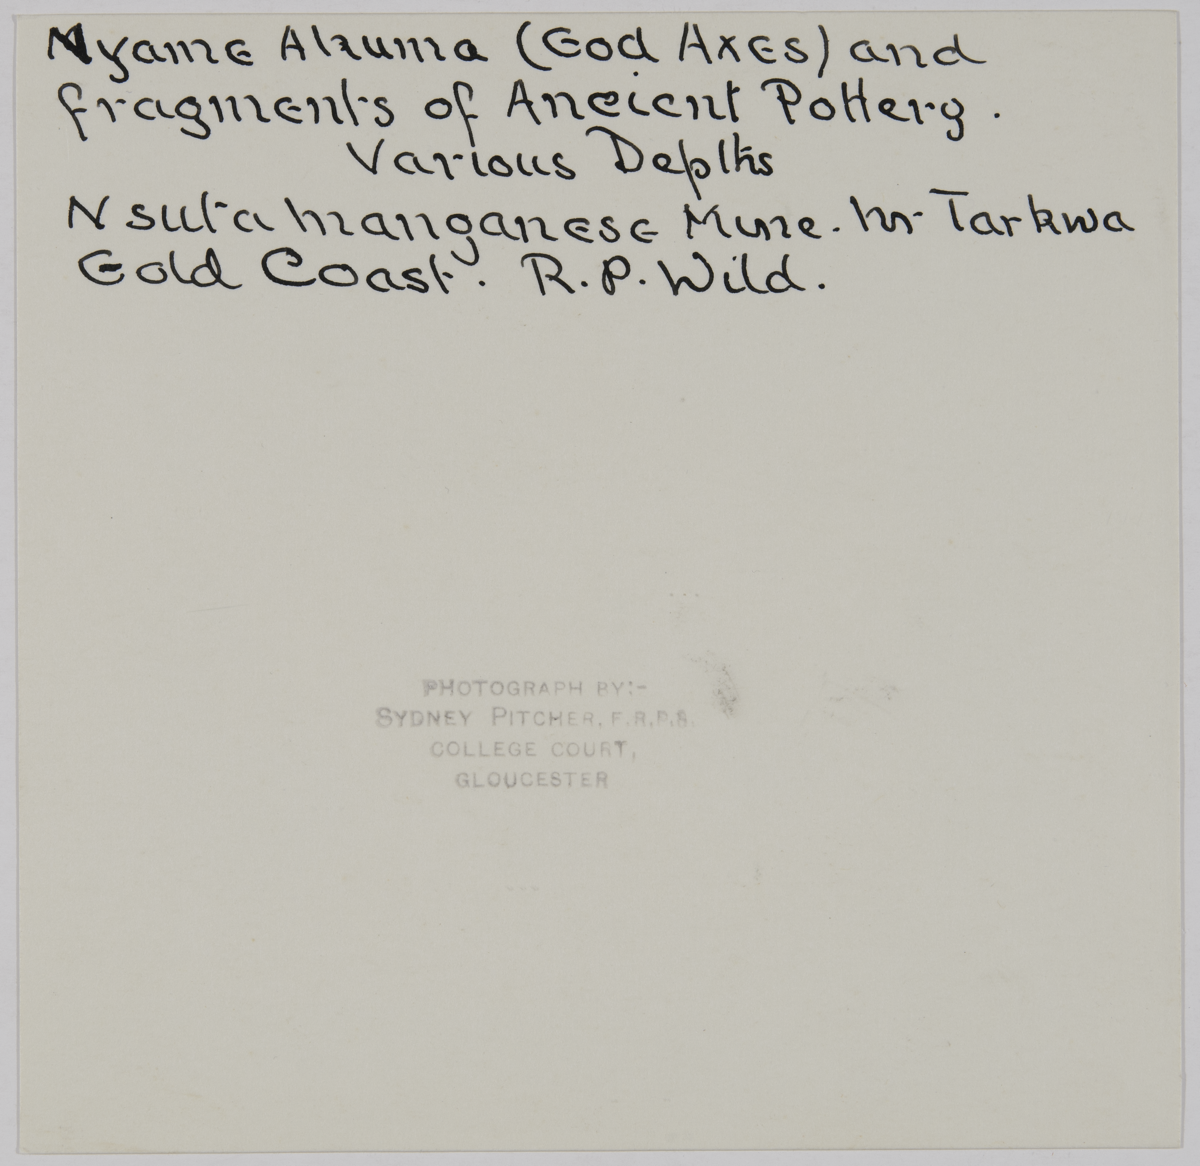 Nyame Akuma (God Axes) and
fragments of Ancient Pottery.
Various Depths
Nsuta Manganese Mine. Nr Tarkwa
Gold Coast. R.P. Wild.
PHOTOGRAPH BY:-
SYDNEY PITCHER, F.R.P.S.
COLLEGE COURT,
GLOUCESTER